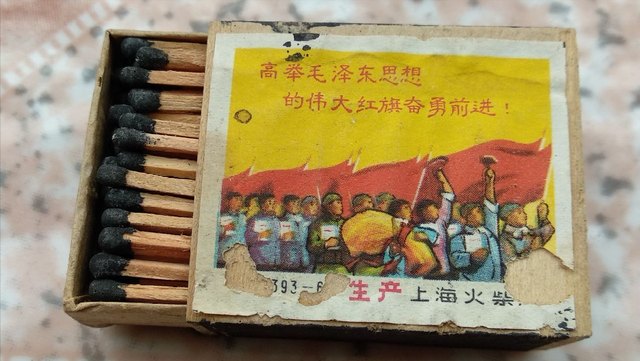 高举毛泽东思想
的伟大红旗奋勇前进！
393-6 生产 上海火柴